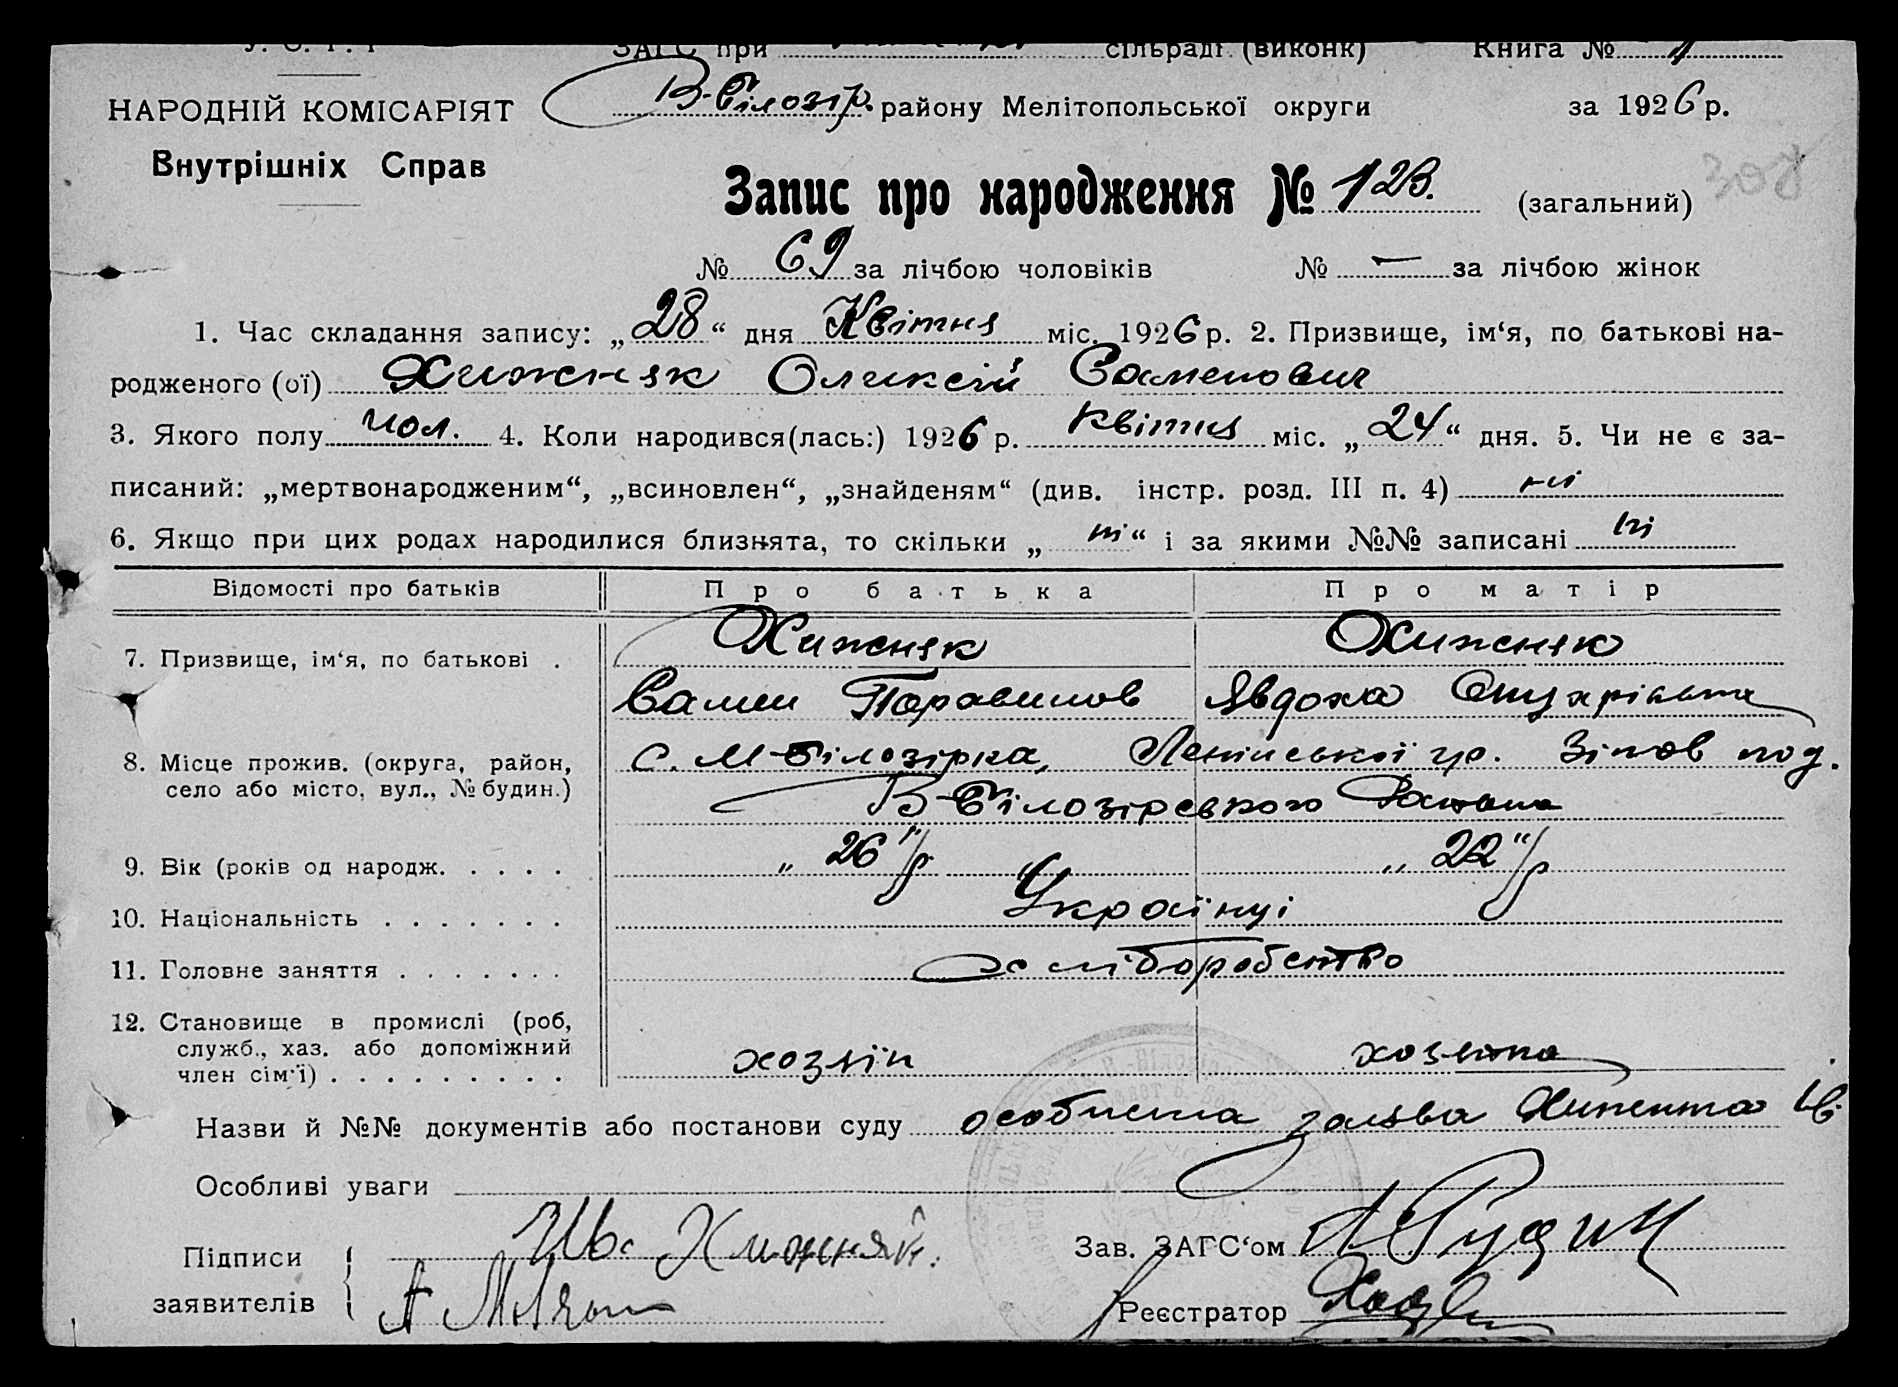 У. С. Р. Р
ЗАГС при сільраді (виконк) Книга №
В-Білозір. району Мелітопольської округи за 1926 р.
НАРОДНІЙ КОМІСАРІЯТ
Внутрішніх Справ
Запис про народження № 123. (загальний)
№ 69 за лічбою чоловіків № — за лічбою жінок
1. Час складання запису: „28“ дня Квітня міс. 1926 р. 2. Призвище, ім‘я, по батькові на-
родженого (ої) Хижняк Оликсій Саменович
3. Якого полу чол. 4. Коли народився(лась:) 1926 р. квітня міс. „24“ дня. 5. Чи не є за-
писаний: „мертвонародженим“, „всиновлен“, „знайденям“ (див. інстр. розд. III п. 4) ні
6. Якщо при цих родах народилися близнята, то скільки „ні“ і за якими №№ записані ні
Відомості про батьків Про батька Про матір
7. Призвище, ім‘я, по батькові . Хижняк Хижняк
Самен Явдоха
8. Місце прожив. (округа, район, с. М-Білозірка,
село або місто, вул., № будин.) В-Білозірського
9. Вік (років од народж. . . . . „26“/р „22“/р
10. Національність . . . . . . . Українці
11. Головне заняття . . . . . . . хліборобство
12. Становище в промислі (роб,
служб., хаз. або допоміжний
член сім‘ї) . . . . . . . . . . хозяїн хозяйка
Назви й №№ документів або постанови суду особиста заява
Особливі уваги
Підписи Ив. Хижняк. Зав. ЗАГС‘ом
заявителів Реєстратор